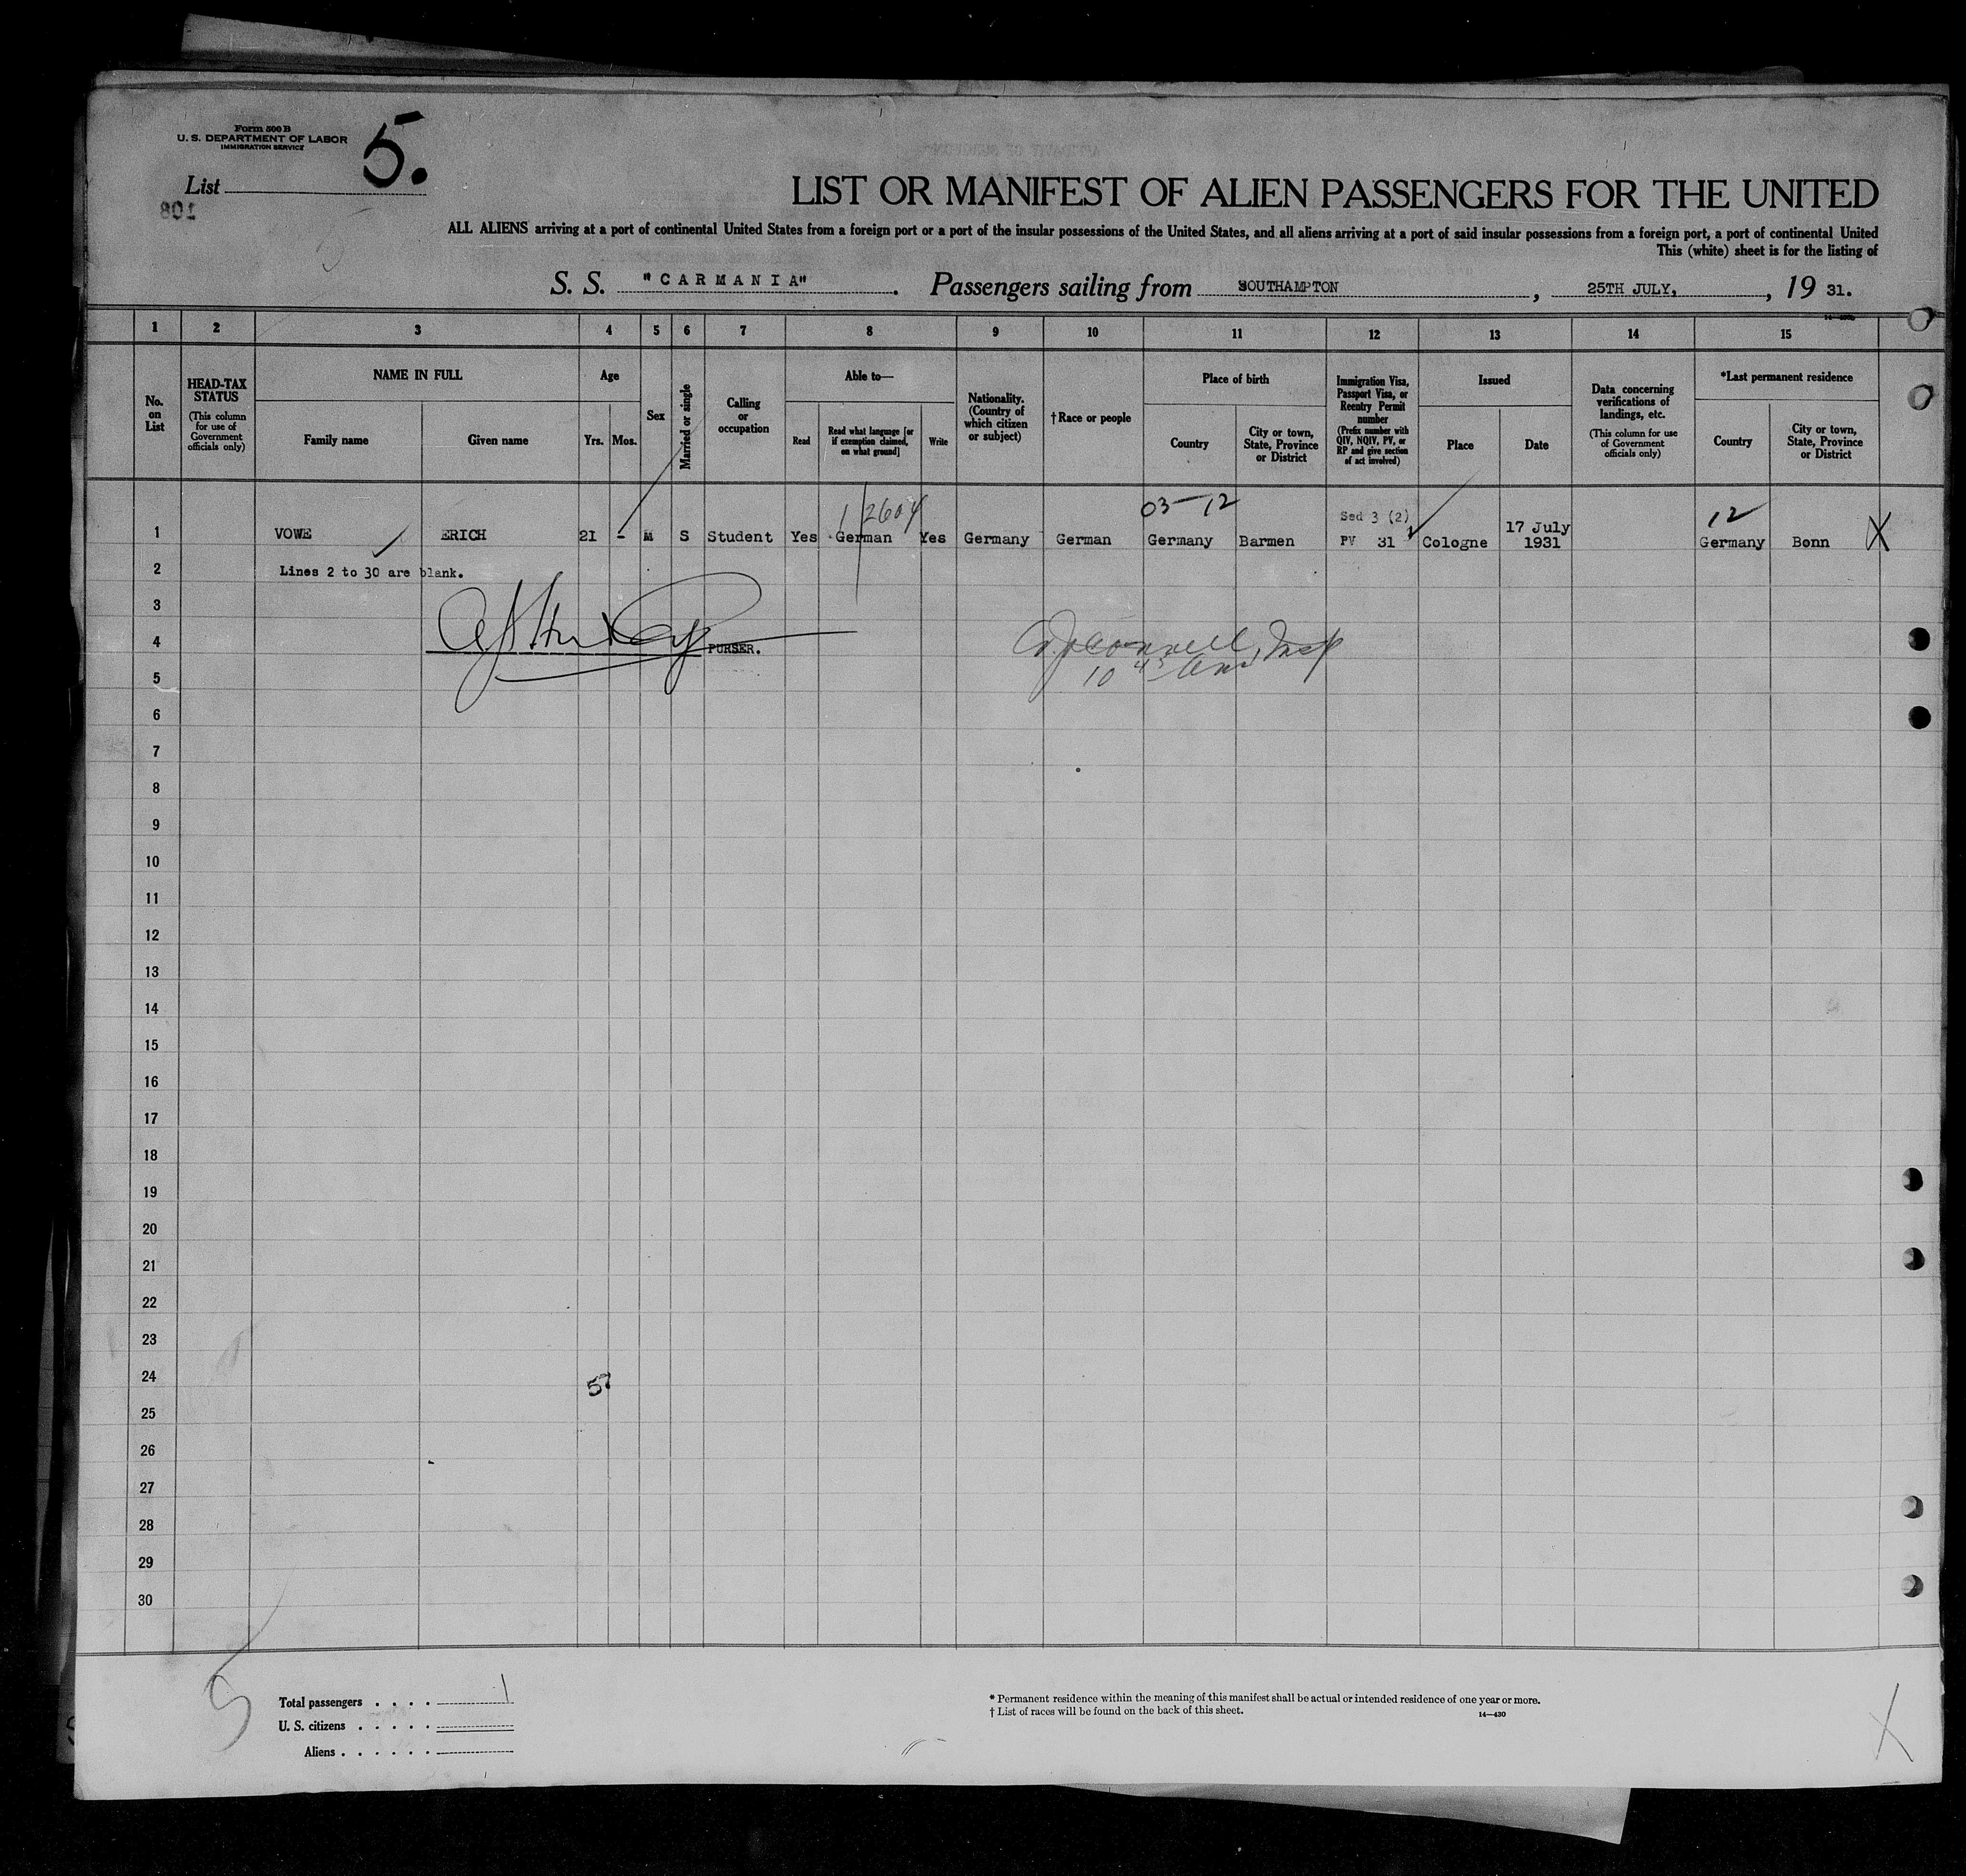 Form 500 B
U. S. DEPARTMENT OF LABOR
IMMIGRATION SERVICE
List 5.
108
LIST OR MANIFEST OF ALIEN PASSENGERS FOR THE UNITED
ALL ALIENS arriving at a port of continental United States from a foreign port or a port of the insular possessions of the United States, and all aliens arriving at a port of said insular possessions from a foreign port, a port of continental United
This (white) sheet is for the listing of
S. S. "CARMANIA". Passengers sailing from SOUTHAMPTON, 25TH JULY, , 19 31.
1 2 3 4 5 6 7 8 9 10 11 12 13 14 15
No. on List
HEAD-TAX STATUS (This column for use of Government officials only)
NAME IN FULL
Family name
Given name
Age
Yrs. Mos.
Sex
Married or single
Calling or occupation
Able to—
Read
Read what language [or if exemption claimed, on what ground]
Write
Nationality. (Country of which citizen or subject)
†Race or people
Place of birth
Country
City or town, State, Province or District
Immigration Visa, Passport Visa, or Reentry Permit number (Prefix number with QIV, NQIV, PV, or RP and give section of act involved)
Issued
Place
Date
Data concerning verifications of landings, etc. (This column for use of Government officials only)
*Last permanent residence
Country
City or town, State, Province or District
1 2604 03-12 Sed 3 (2) 12
1 VOWE ERICH 21 - M S Student Yes German Yes Germany German Germany Barmen PV 31 Cologne 17 July 1931 Germany Bonn X
2 Lines 2 to 30 are blank.
3
4 PURSER.
5 10 45 am
6
7
8
9
10
11
12
13
14
15
16
17
18
19
20
21
22
23
24 57
25
26
27
28
29
30
5
Total passengers . . . . 1
U. S. citizens . . . . .
Aliens . . . . . .
* Permanent residence within the meaning of this manifest shall be actual or intended residence of one year or more.
† List of races will be found on the back of this sheet. 14—430
X